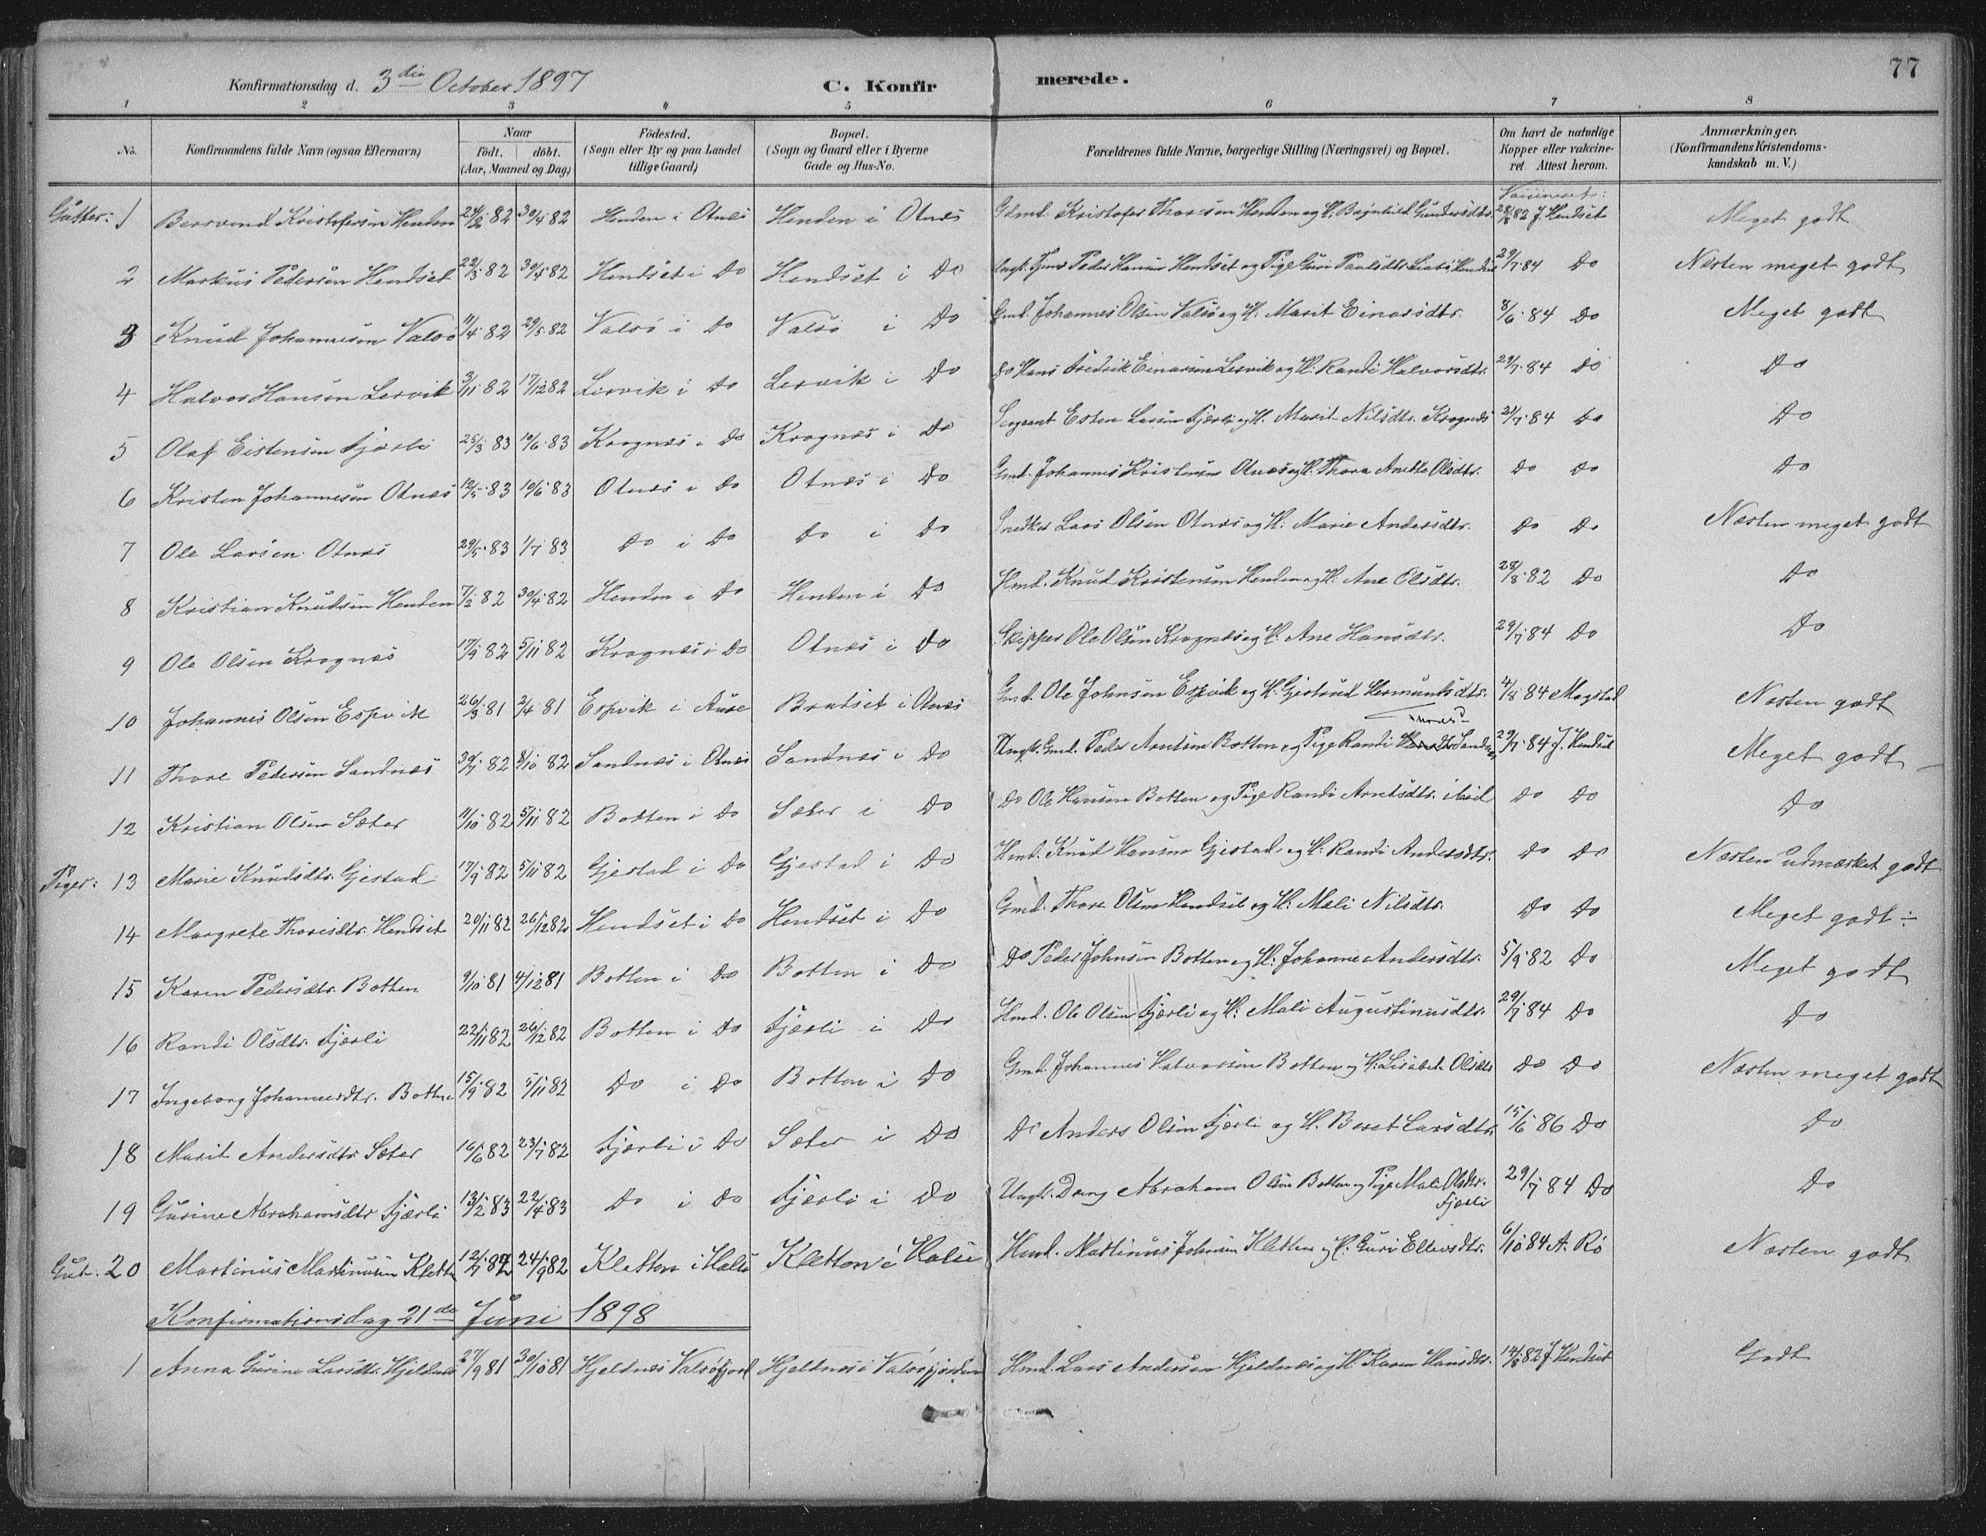 Konfirmationsdag d. 3die October 1897 C. Konfirmerede. 77
1 2 3 4 5 6 7 8
No. Konfirmandens fulde Navn (ogsaa Efternavn) Naar födt. döbt. (Aar, Maaned og Dag) Födested. (Sogn eller By og paa Landet tillige Gaard) Bopæl. (Sogn og Gaard eller i Byerne Gade og Hus-No. Forældrenes fulde Navne, borgerlige Stilling (Næringsvei) og Bopæl. Om havt de naturlige Kopper eller vaccineret. Attest herom. Anmærkninger. (Konfirmandens Kristendomskundskab m. V.)
Gutter: 1 Kristofersen Henden 30/4 82 Henden i Otnes Henden i Otnes Gdmd. Kristofer Thoresen Henden og H. Gundersdtr. 82 J. Hendset Meget godt
2 Markus Pedersen Hendset 22/3 82 30/4 82 Hendset i Do Hendset i Do Peder Hansen Hendset og Pige Guri 29/7 84 Do Næsten meget godt
3 Knud Johannesen Valsø 11/4 82 29/5 82 Valsø i Do Valsø i Do Gmd. Johannes Olsen Valsø og H. Marit Einarsdtr. 8/6 84 Do Meget godt
4 Halvor Hansen Lervik 3/11 82 17/12 82 Lervik i Do Lervik i Do Do Hans Fredrik Einarsen Lervik og H. Randi Halvorsdtr. 29/7 84 Do Do
5 Olaf Estensen Fjærli 25/3 83 10/6 83 Krognes i Do Krognes i Do Sergeant Esten Larsen Fjærli og H. Marit Nilsdtr. Krognes 29/7 84 Do Do
6 Kristen Johannesen Otnes 12/5 83 10/6 83 Otnes i Do Otnes i Do Gmd. Johannes Kristensen Otnes og H. Thora Anette Olsdtr. Do Do Do
7 Ole Larsen Otnes 29/5 83 1/7 83 Do i Do Do i Do Snedker Lars Olsen Otnes og H. Marie Andersdtr. Do Do Næsten meget godt
8 Kristian Knudsen Henden 7/2 82 30/4 82 Henden i Do Henden i Do Hmd. Knud Kristensen Henden og H. Ane Olsdtr. 28/8 82 Do Do
9 Ole Olsen Krognes 17/9 82 5/11 82 Krognes i Do Otnes i Do Skipper Ole Olsen Krognes og H. Ane Hansdtr. 29/7 84 Do Do
10 Johannes Olsen Espvik 26/3 81 81 Espvik i Aure Brudset i Otnes Gmd. Ole Johnsen Espvik og H. Gjertrud 4/8 84 Magstad Næsten godt
11 Thore Pedersen Sandnes 30/7 82 8/10 82 Sandnes i Otnes Sandnes i Do Ungk. Gmd. Peder Botten og Pige Randi Thores 29/7 84 J. Hendset Meget godt –
12 Kristian Olsen Sæter 11/10 82 5/11 82 Botten i Do Sæter i Do Do Ole Hansen Botten og Pige Randi Arntsdtr. ibid Do Do Do
Piger: 13 Marie Knudsdtr. Gjestad 17/9 82 5/11 82 Gjestad i Do Gjestad i Do Hmd. Knud Hansen Gjestad og H. Randi Andersdtr. Do Do Næsten udmærket godt
14 Margrete Thoresdtr. Hendset 20/11 82 26/12 82 Hendset i Do Hendset i Do Gmd. Thore Olsen Hendset og H. Mali Nilsdtr. Do Do Meget godt ÷
15 Karen Pedersdtr. Botten 9/10 81 4/12 81 Botten i Do Botten i Do Do Peder Johnsen Botten og H. Johanne Andersdtr. 5/9 82 Do Meget godt
16 Randi Olsdtr. Fjærli 22/11 82 26/12 82 Botten i Do Fjærli i Do Hmd. Ole Olsen Fjærli og H. Mali Augustinusdtr. 29/7 84 Do Do
17 Ingeborg Johannesdtr. Botten 15/9 82 5/11 82 Do i Do Botten i Do Gmd. Johannes Halvorsen Botten og H. Lisabet Olsdtr Do Do Næsten meget godt
18 Marit Andersdtr. Sæter 16/6 82 23/7 82 Fjærli i Do Sæter i Do Do Anders Olsen Fjærli og H. Beret Larsdtr. 15/6 86 Do Do
19 Gurine Abrahamsdtr. Fjærli 13/2 83 22/4 83 Do i Do Fjærli i Do Ungk. Dreng Abraham Olsen Botten og Pige Mali Olsdtr. Fjærli 29/7 84 Do Do
Gut. 20 Martinus Martinusen Kletten 12/7 82 24/9 82 Kletten i Halse Kletten i Halse Hmd. Martinus Johnsen Kletten og H. Guri Ellevsdtr. 6/10 84 A. Rø Næsten godt
Konfirmationsdag 21de Juni 1898
1 Anna Gurine Larsdtr. Hjeldnes 27/9 81 30/10 81 Hjeldnes Valsøfjord Hjeldnes i Valsøfjorden Hmd. Lars Andersen Hjeldnes og H. Karen Hansdtr. 14/9 82 J. Hendset Godt